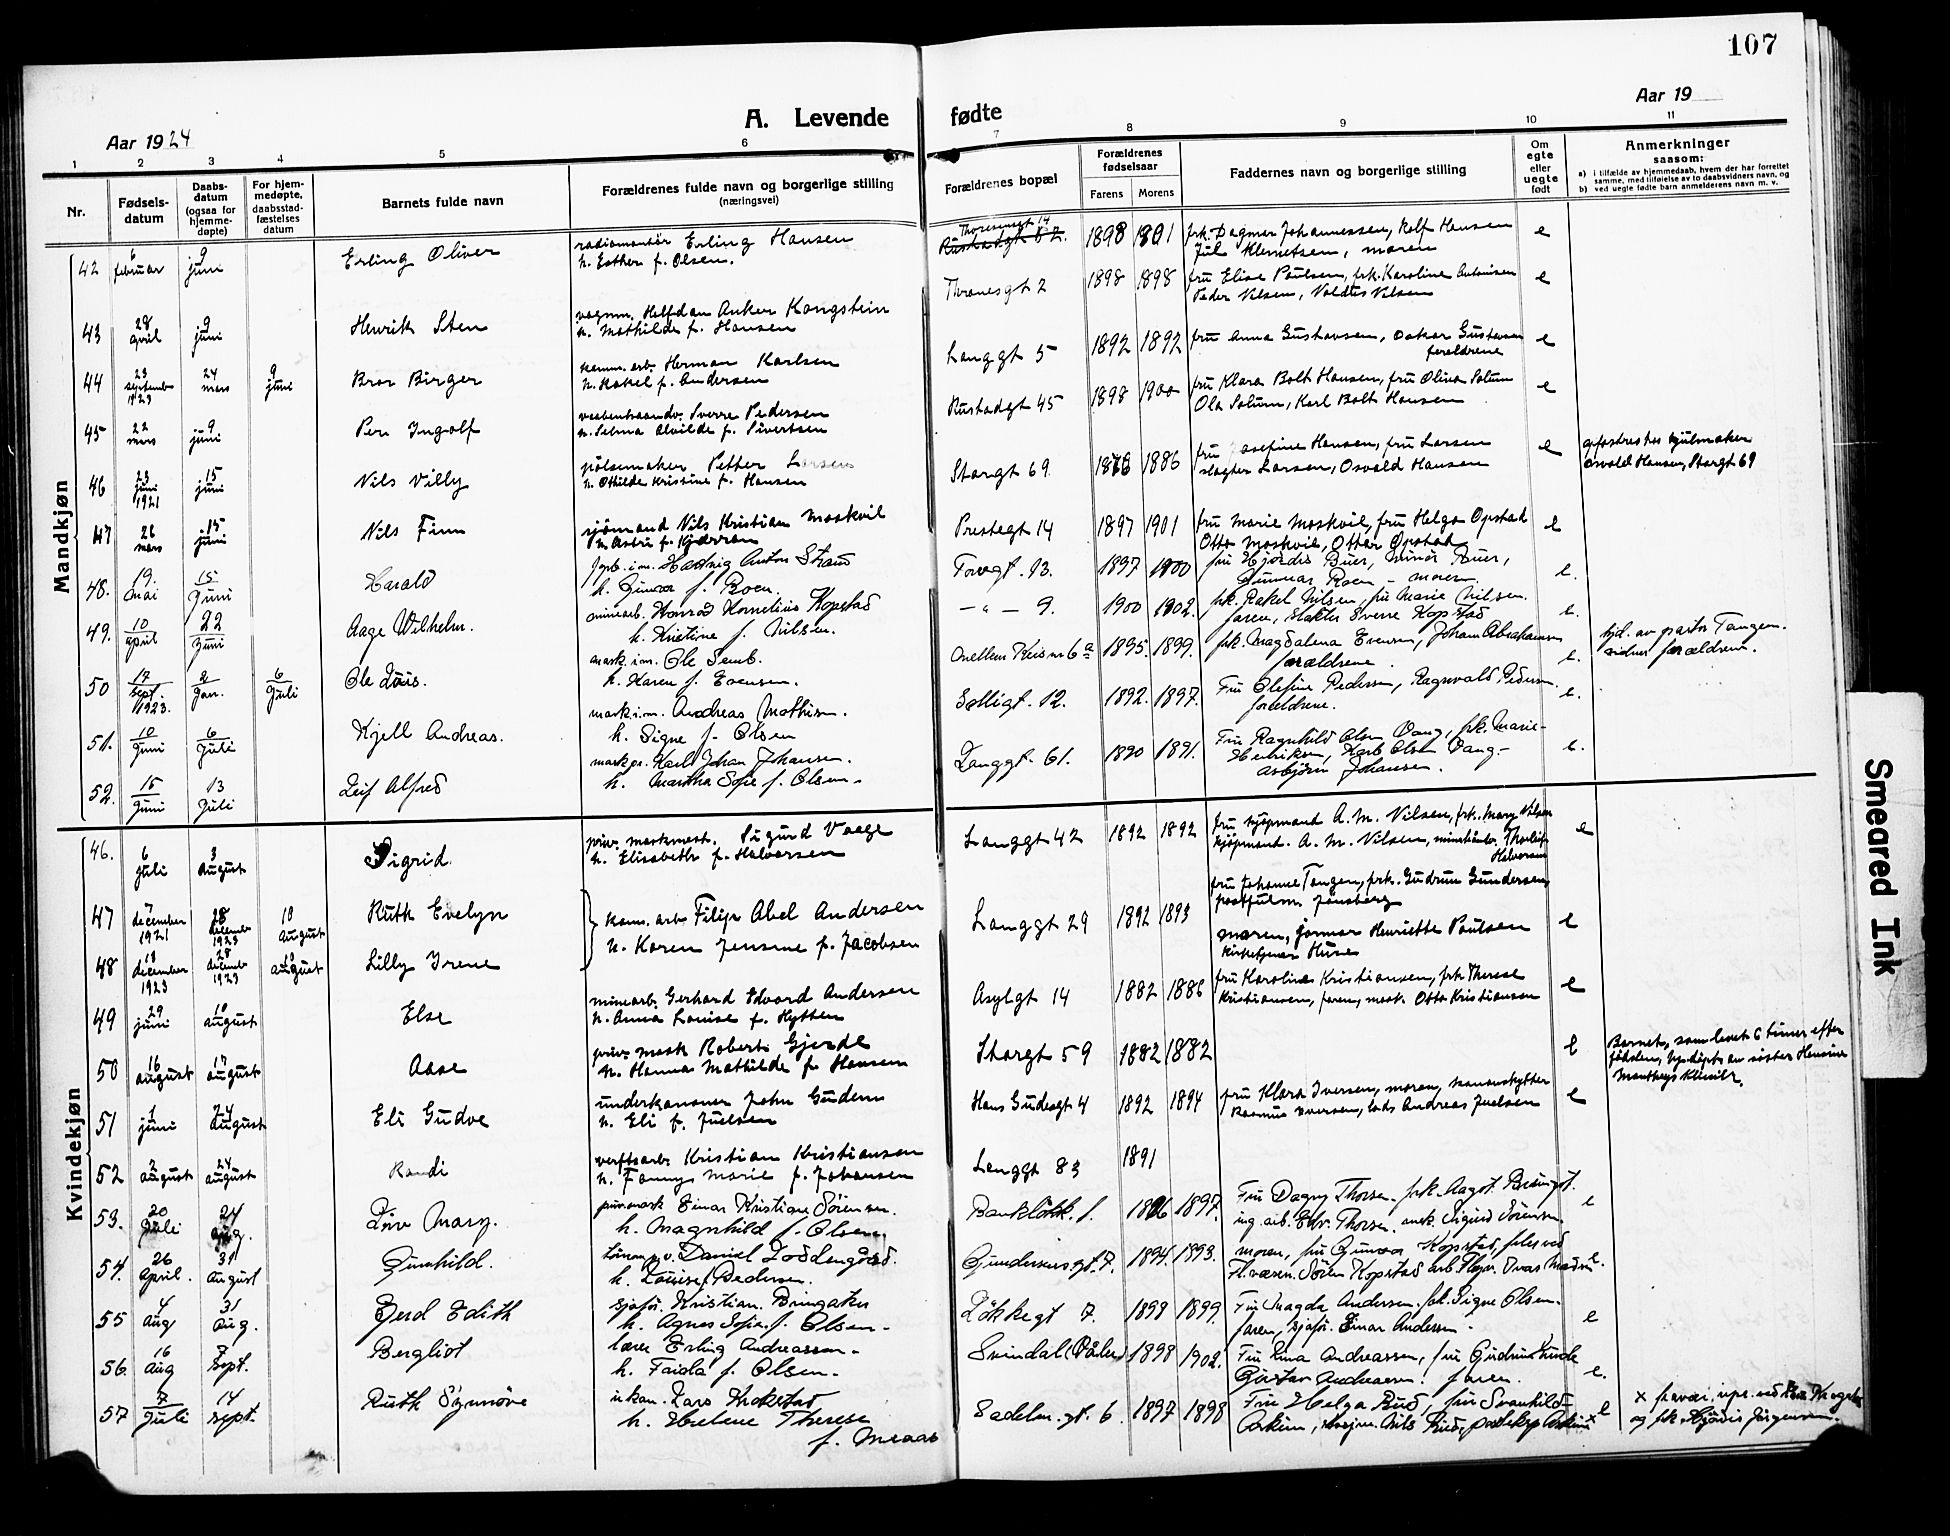 107
Aar 1924
A. Levende
fødte
Aar 19
1 2 3 4 5 6 7 8 9 10 11
Nr.
Fødsels-
datum
Daabs-
datum
(ogsaa for
hjemme-
døpte)
For hjem-
medøpte,
daabsstad-
fæstelses
datum
Barnets fulde navn
Forældrenes fulde navn og borgerlige stilling
(næringsvei)
Forældrenes bopæl
Forældrenes
fødselsaar
Farens Morens
Faddernes navn og borgerlige stilling
Om
egte
eller
uegte
født
Anmerkninger
saasom:
a) i tilfælde av hjemmedaab, hvem der har forrettet
samme, med tilføielse av to daabsvidners navn, og
b) ved uegte fødte barn anmelderens navn m. v.
Mandkjøn
42 6 februar 9 juni Erling Oliver radiomontör Erling Hansen Thornesgt 14 1898 1901 frk. Dagmar Johannessen, Rolf Hansen e
h. Esther f. Olsen. Rustadgt 62. Jul Klemetsen, moren
43 28 april 9 juni Henrik Sten vognm. Halfdan Anker Kongstein Thronesgt 2 1898 1898 fru Elise Paulsen, frk. Karoline Antonisen e
h. Mathilde f. Hansen Peder Nilsen, Valdus Nilsen
44 23 september 1923 24 mars 9 juni Bror Birger komm. arb. Herman Karlsen Langgt 5 1892 1892 fru Anna Gustavsen, Oskar Gustavsen e
h. Rakel f. Andersen foreldrene
45 22 mars 9 juni Per Ingolf Sverre Pedersen Rustadgt 45 1898 1900 fru Klara Bolt Hansen, fru Oliva Solum e
h. Selma Alvilde f. Sivertsen Ola Solum, Karl Bolt Hansen
46 23 juni 1921 15 juni Nils Villy pölsemaker Petter Larsen Storgt 69 1876 1886 fru Josefine Hansen, fru Larsen e opfostres hos hjulmaker
h. Othilde Kristine f. Hansen slagter Larsen, Osvald Hansen Osvald Hansen, Storgt 69
47 26 mars 15 juni Nils Finn sjömand Nils Kristian Moskvil Prestegt 14 1897 1901 fru Marie Moskvil, fru Helga Opstad e
h. Astri f. Otto Moskvil, Ottar Opstad
48. 19. mai 15 Juni Harald Anton Strand Torvgt. 13. 1897 1900 fru Hjördis Buer, Buer, e.
h. Gunvor f. Roen. Gunnar Roen - moren.
49. 10 april 22 Juni Aage Wilhelm. minearb. Konrad Kornelius Kopstad - " - 9. 1900 1902. frk. Rakel Nilsen, fru Marie Nilsen. e.
h. Kristine f. Nilsen. faren, Sverre Kopstad
50 17 Sept. 1923. 2 Jan. 6 Juli Ole Löis. mask.i.m. Ole Semb. 6a 1895. 1899. frk. Magdalena Evensen, Johan Abrahamsen e. hjd. av pastor Tangen.
h. Karen f. Evensen. forældrene. vidner forældrene.
51. 10 Juni 6 Juli Kjell Andreas. mask.i.m. Andreas Mathisen. Solligt. 12. 1892. 1897. Fru Olefine Pedersen, Ragnvald Pedersen e.
h. Signe f. Olsen foreldrene.
52. 15 Juni 13 Juli Leif Alfred Karl Johan Johansen. Langgt. 61. 1890 1891. Fru Ragnhild Olsen Vang, frk. Marie- e.
h. Martha Sofie f. Olsen - Henriksen, Karl Olsen Vang-
Asbjörn Johansen.
Kvindekjøn
46. 6 juli 3 august Sigrid. priv. maskmest. Sigurd Vaage Langgt 42 1892 1892 fru kjöpmand A. M. Nilsen, frk. Mary Nilsen e
h. Elisabeth f. Halvorsen kjöpmand A. M. Nilsen, Thorleif
Halvorsen
47 7 december 1921 28 december 1923 10 august Ruth Evelyn kom. arb Filip Abel Andersen Langgt 29 1892 1893 fru Johanne Tangen, frk. Gudrun Gundersen,
postfulm. Jönsberg
48 18 december 1923 28 december 1923 10 august Lilly Irene h. Karen Jensine f. Jacobsen moren, jormor Henriette Paulsen e
kirketjener Huse
49 29 juni 10 august Else minearb. Gerhard Edvard Andersen Asylgt 14 1882 1886 fru Karoline Kristiansen, frk. Therese e
h. Anna Louise f. Hytten Kristiansen, faren, mask. Otto Kristiansen
50 16 august 17 august Aase priv. mask Robert Gjerde Storgt 59 1882 1882 e Barnet, som levet 6 timer efter
h. Hanna Mathilde f. Hansen födslen, hjs.döpt av söster Hansine
51 1 juni 24 august Eli Gudve underkanoner John Gudem Hans Gudesgt 4 1892 1894 fru Klara Iversen, moren, e
h. Eli f. Juelsen Rasmus Iversen, Andreas Juelsen
52 2 august 24 august Randi verftsarb. Kristian Kristiansen Langgt 83 1891
h. Fanny Marie f. Johansen
53. 20 Juli 24 Aug. Liv Mary. Einar Kristian Sörensen. Bankløkk. 1. 1896 1897. Fru Dagny Thorsen. frk. Aagot e
h. Magnhild f. Olsen. Edv. Thorsen. Sigurd Sörensen.
54. 26 April. 31 August Gunhild. Daniel Loddengaard. Gundersens gt. 7. 1894. 1893. moren, fru Gunvor Kopstad, e.
h. Louise f. Pedersen. Sören Kopstad
55 4 Aug 31 Aug. Gerd Edith sjafør. Kristian Bringaker Løkkegt 7. 1899 1899. Fru Magda Andersen. frk. Signe Olsen. e
h. Agnes Sofie. f. Olsen- faren, sjafør. Einar Andersen -
56. 16 Aug 7 Sept. Bergliot lærer Erling Andreassen- Svindal (Våler) 1898 1902. Fru Andreassen, fru Gudrun
h. Faida f. Olsen. Gustav Andreassen. faren. e.
57 7 Juli 14 Sept. Ruth Synnöve Lars Sadelm. gt. 6. 1897 1898 Fru Helga Rud, fru Svanhild x e x
h. Helene Therese Nils Rud, og frk. Hjördis Jörgensen.
f. Meaas
Smeared Ink